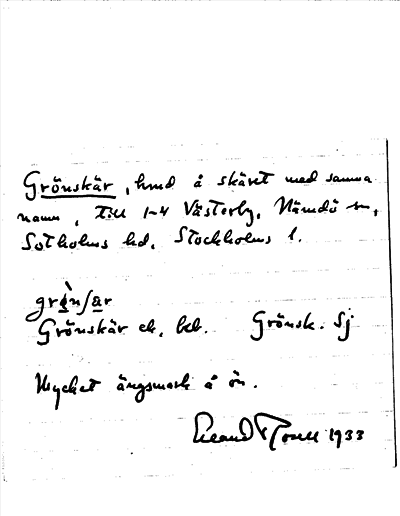 Grönskär, hmd å skäret med samma
namn, till 1-4 Västerby, Nämdö sn,
Sotholms hd, Stockholms l.
Grönskär ek. bl. Grönsk. Sj
Mycket ängsmark å ön.
1933